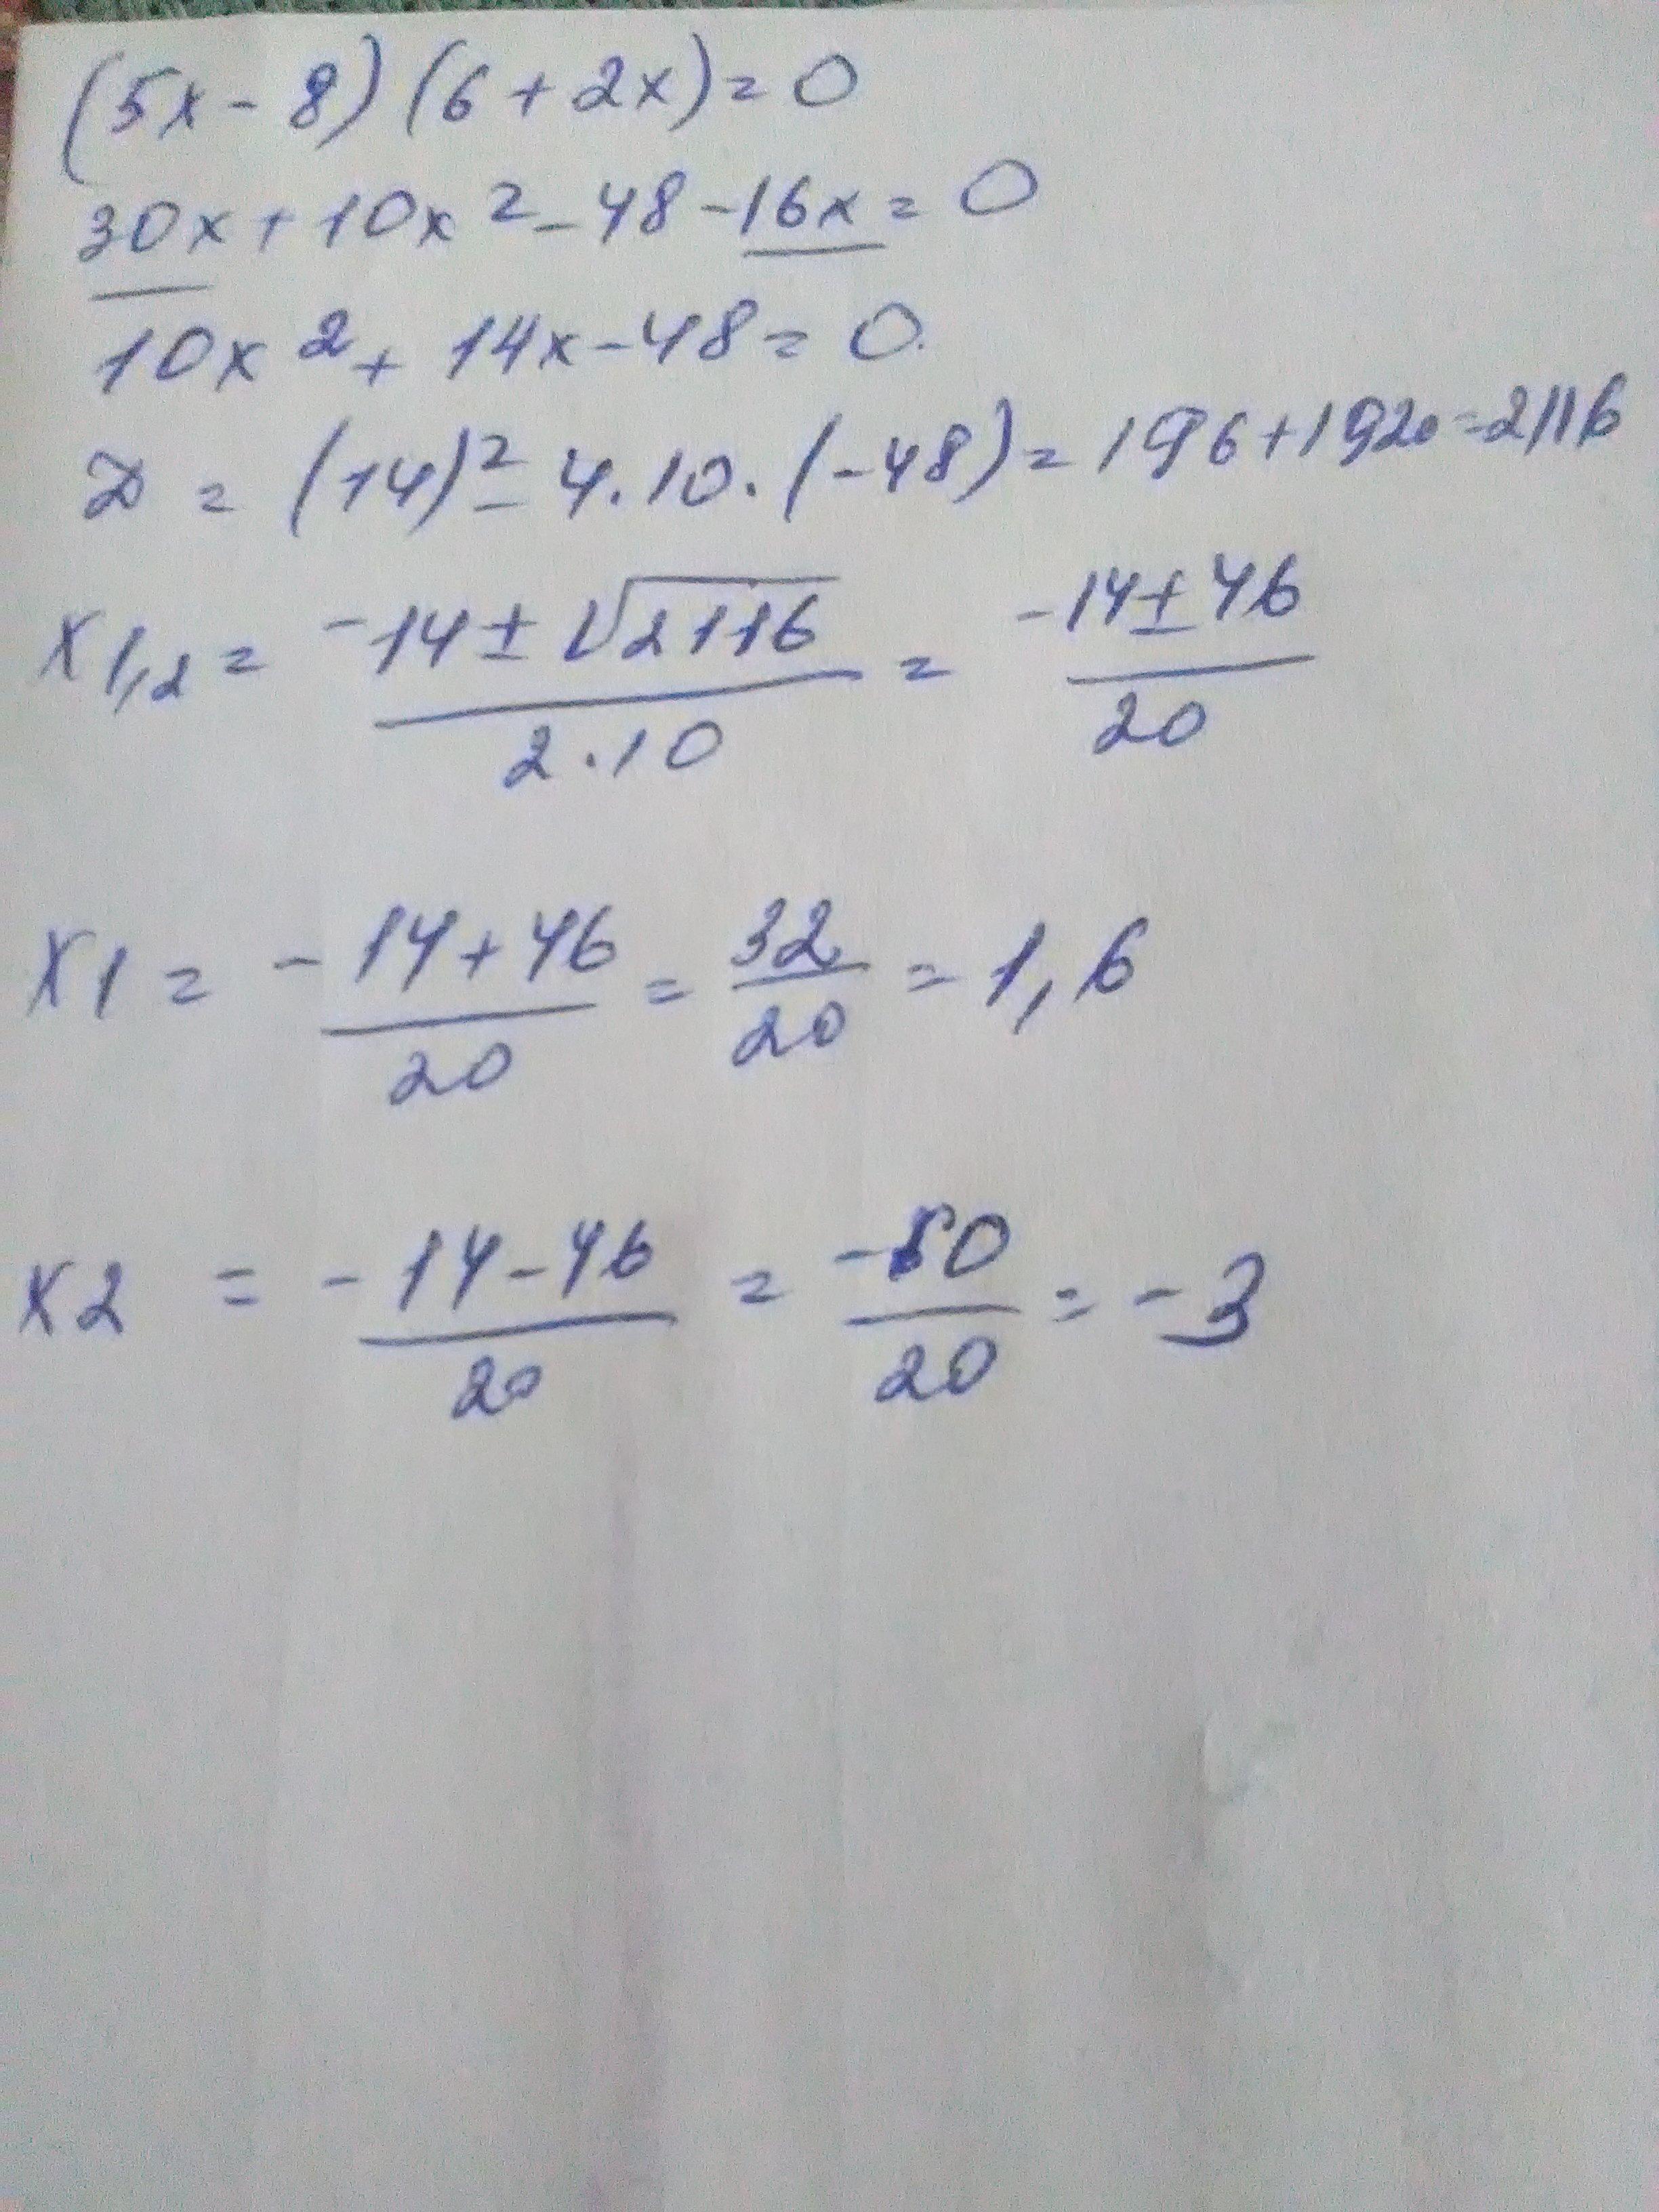 (5x - 8)(6 + 2x) = 0
30x + 10x² - 48 - 16x = 0
10x² + 14x - 48 = 0.
D = (14)² - 4 · 10 · (-48) = 196 + 1920 = 2116
x1,2 = -14 ± √2116 / 2 · 10 = -14 ± 46 / 20
x1 = -14 + 46 / 20 = 32 / 20 = 1,6
x2 = -14 - 46 / 20 = -60 / 20 = -3